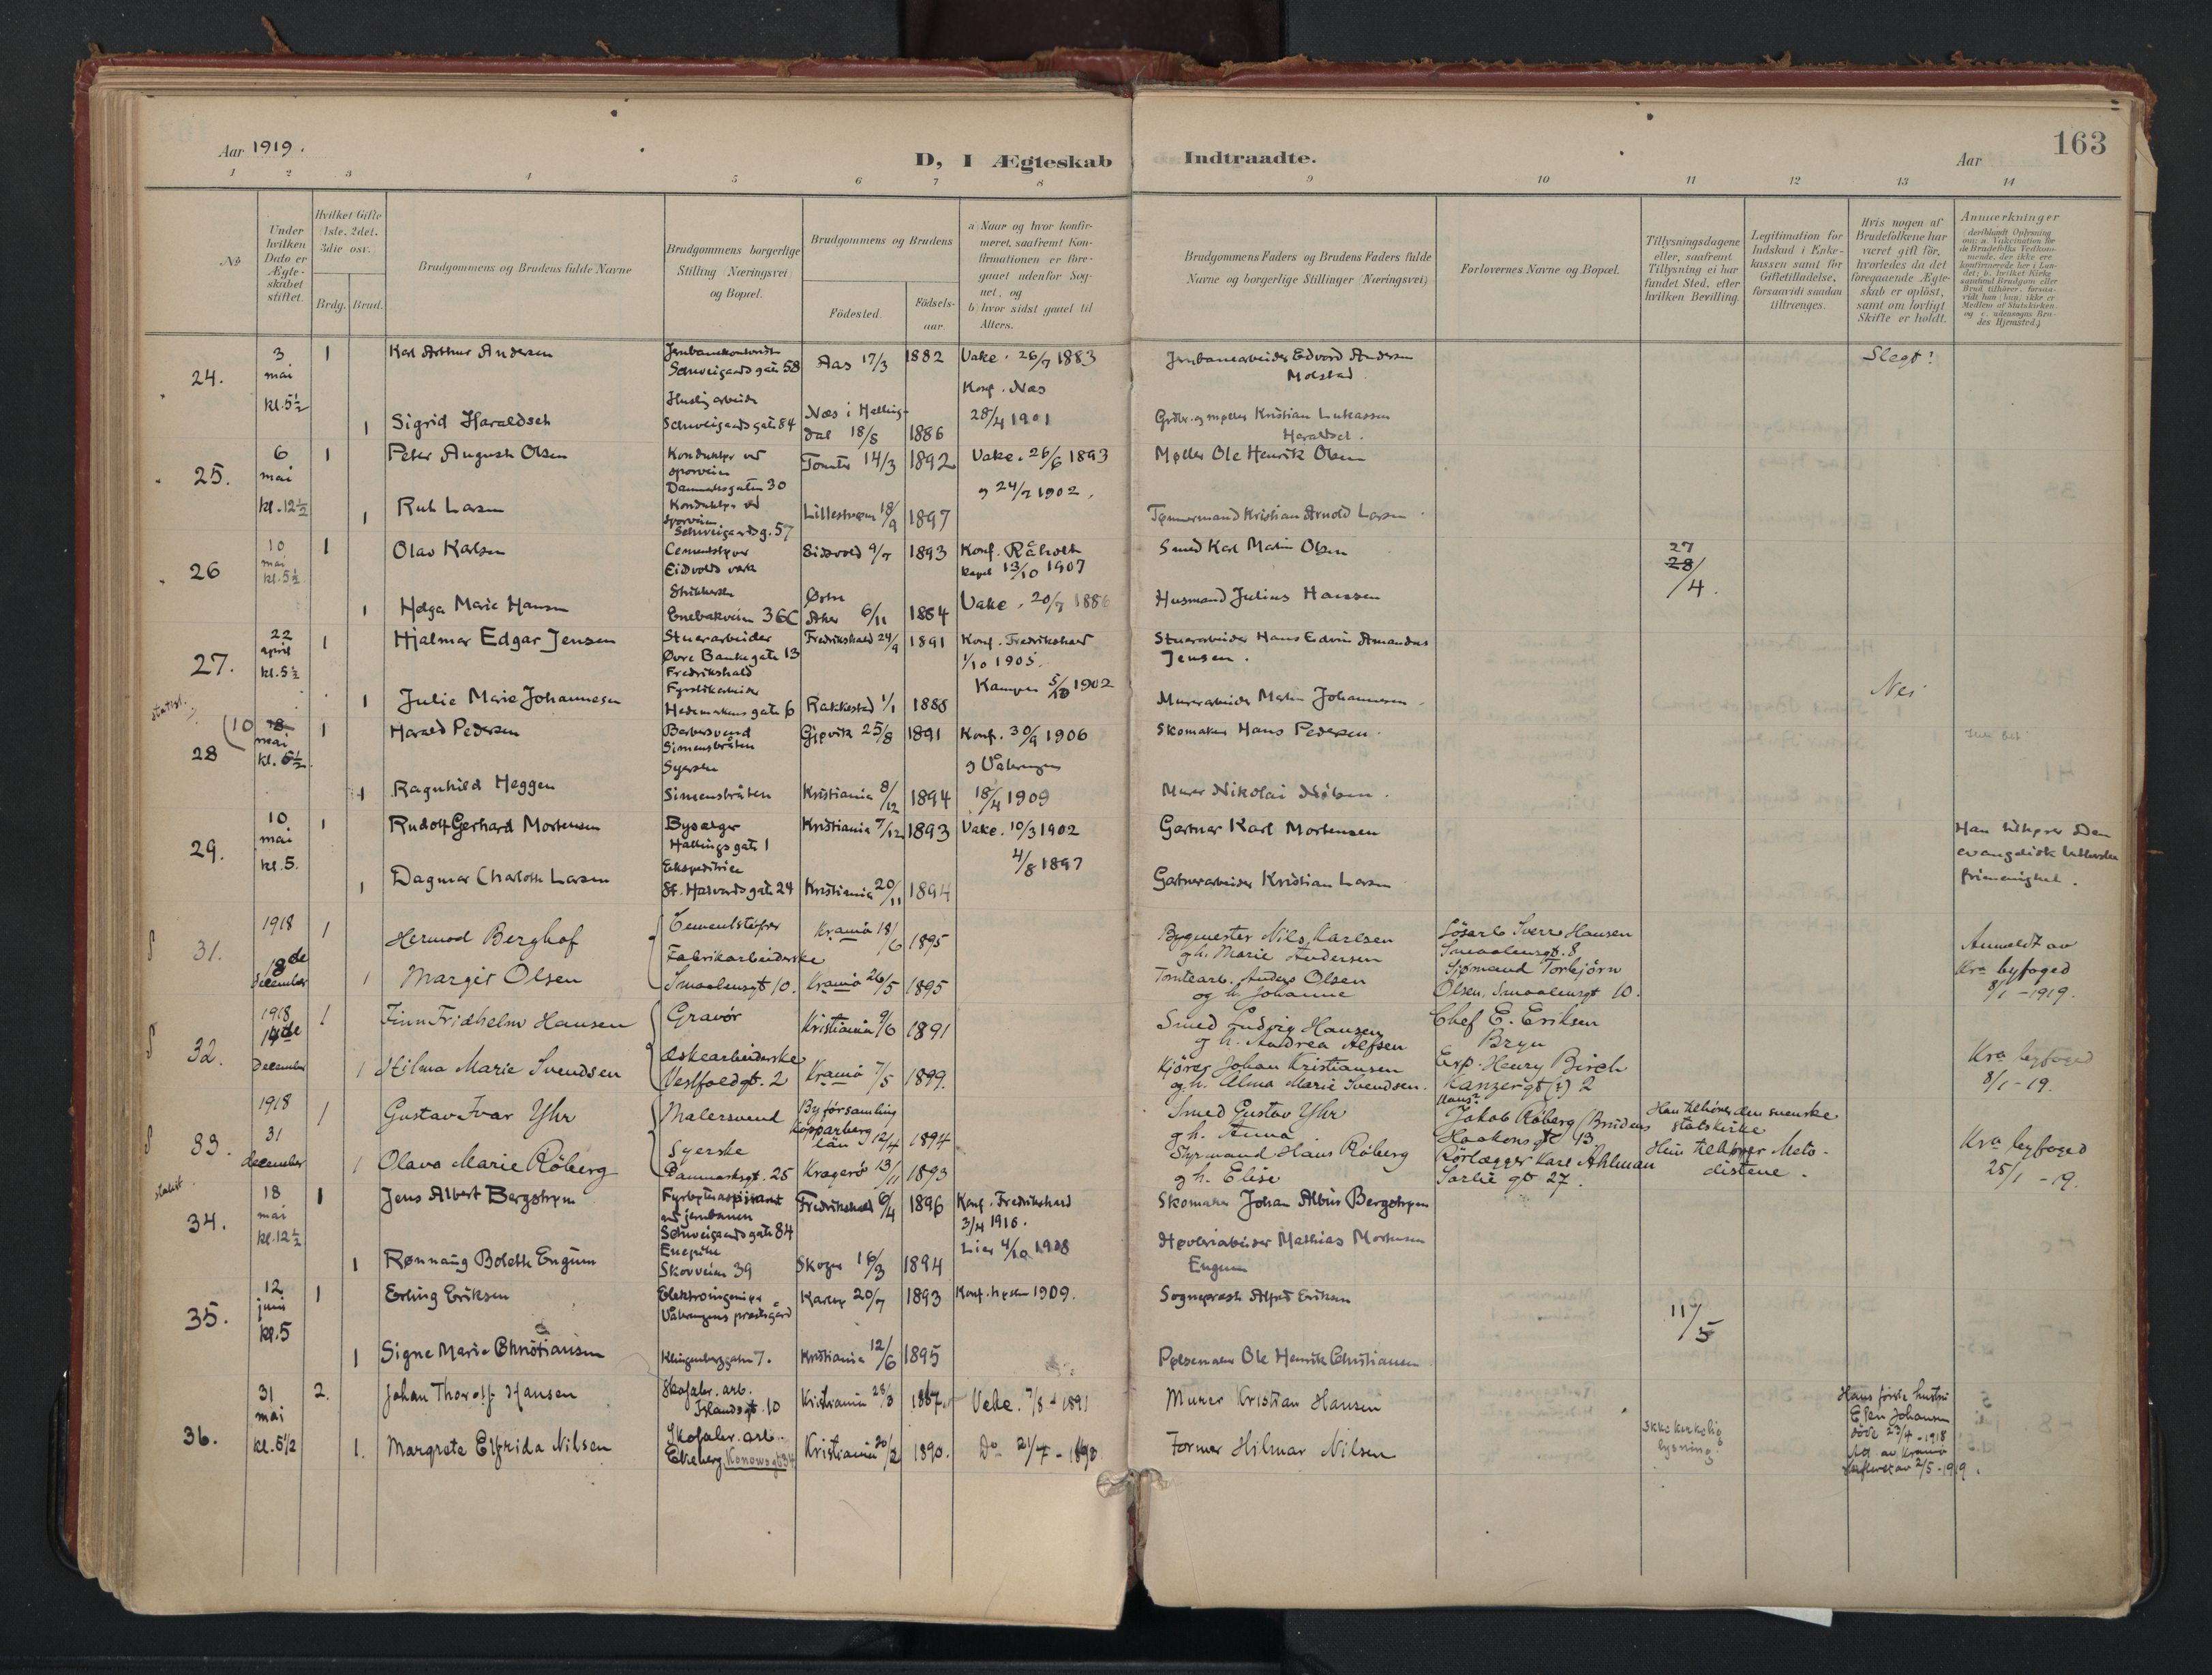 Aar 1919.
D, I Ægteskab Indtraadte.
Aar
163
1 2 3 4 5 6 7 8 9 10 11 12 13 14
No
Under hvilken Dato er Ægteskabet stiftet.
Hvilket Gifte (1ste, 2det, 3die osv.)
Brdg. Brud.
Brudgommens og Brudens fulde Navne
Brudgommens borgerlige Stilling (Næringsvei) og Bopæl.
Brudgommens og Brudens
Födested.
Födselsaar.
a) Naar og hvor konfirmeret, saafremt Konfirmationen er foregaaet udenfor Sognet, og
b) hvor sidst gaaet til Alters.
Brudgommens Faders og Brudens Faders fulde Navne og borgerlige Stillinger (Næringsvei)
Forlovernes Navne og Bopæl.
Tillysningsdagene eller, saafremt Tillysning ei har fundet Sted, efter hvilken Bevilling.
Legitimation for Indskud i Enkekassen samt for Giftetilladelse, forsaavidt saadan tiltrænges.
Hvis nogen af Brudefolkene har været gift för, hvorledes da det foregaaende Ægteskab er oplöst, samt om lovligt Skifte er holdt.
Anmærkninger
24. 3 mai kl. 5½
1 Karl Arthur Andersen
Schweigaards gate 58
Aas 17/3 1882
Vake. 26/7 1883
Jernbanearbeider Edvard Andersen Molstad
Slegt!
1 Sigrid Haraldset
Schweigaards gate 84
Næs i Hallingdal 18/8 1886
Konf. Næs 28/4 1901
Kristian Lukassen Haraldset.
25. 6 mai kl. 12½
1 Peter August Olsen
Konduktør ved sporveien Danmarksgaten 30
Tomter 14/3 1892
Vake. 26/6 1893
Møller Ole Henrik Olsen
1 Rut Larsen
Konduktør ved sporveien Schweigaards g. 57
Lillestrøm 18/9 1897
og 24/7 1902.
Tømmermand Kristian Arnold Larsen
26 10 mai kl. 5½
1 Olav Karlsen
Cementstøper Eidsvolds værk
Eidsvold 9/7 1893
Konf. Råholt kapel 13/10 1907
Smed Karl Martin Olsen
27 28/4.
1 Helga Marie Hansen
Strikkerske Enebakveien 36C
Østre Aker 6/11 1884
Vake. 20/7 1886
Husmand Julius Hansen
27. 22 april kl. 5½
1 Hjalmar Edgar Jensen
Stuerarbeider Øvre Bankegate 13 Fredrikshald
Fredrikshald 24/9 1891
Konf. Fredrikshald 1/10 1905.
Stuerarbeider Hans Edvin Amandus Jensen.
1 Julie Marie Johannesen
Fyrstikarbeider Hedemarkens gate 6
Rakkestad 1/1 1888
Kampen 5/10 1902
Murerarbeider Martin Johannesen
Nei
statist.
28 (10 18 mai kl. 5½
1 Harald Pedersen
Barbersvend Simensbråten
Gjøvik 25/8 1891
Konf. 30/9 1906
Skomaker Hans Pedersen.
1 Ragnhild Heggen
Syerske Simensbråten
Kristiania 8/12 1894
og Vålerengen 18/4 1909
Murer Nikolai Nilsen.
29. 10 mai kl. 5.
1 Rudolf Gerhard Mortensen
Bysælger Hallings gate 1
Kristiania 7/12 1893
Vake. 10/3 1902
Gartner Karl Mortensen
Han tilhører den evangelisk lutherske frimenighet.
1 Dagmar Charlotte Larsen
Ekspeditrice St. Halvards gate 24
Kristiania 20/11 1894
4/8 1897
Gartnerarbeider Kristian Larsen
31. 1918 18de December
1 Hermod Berghof
Cementstøper
Kramå 18/6 1895
Bygmester Nils Karlsen gh. Marie Andersen
Lösarb Sverre Hansen Smaalensgt. 8
Anmeldt av Kra byfoged 8/1 - 1919.
1 Margit Olsen
Fabrikarbeiderske Smaalensgt 10.
Kramå 26/5 1895
Tomtearb. Anders Olsen og h. Johanne
Sjømand Torbjörn Olsen, Smaalensgt 10.
32. 1918 14de December
1 Finn Fridhelm Hansen
Gravör
Kristiania 9/6 1891
Smed Ludvig Hansen og h. Andrea Alfsen
Chef E. Eriksen Bryn
Kra byfoged 8/1 - 19.
1 Hilma Marie Svendsen
Æskearbeiderske Vestfoldgt. 2
Kramå 7/5 1899.
Kjörer Johan Kristiansen og h. Alma Marie Svendsen.
Exp. Henry Birch Kanzergt (?) 2
33. 1918 31 december
1 Gustav Ivar Yhr
Malersvend
By församling Kopparberg län 12/4 1894
Smed Gustav Yhr g h. Anna
Jakob Röberg (Brudens Haakons gt 13
Han tilhörer den svenske statskirke
Kra byfoged 25/1 - 19.
1 Olava Marie Röberg
Syerske Danmarksgt. 25
Kragerö 13/11 1893
Styrmand Hans Röberg g h. Elise
Rörlægger Karl Ahlman Sarlie gt 27.
Hun tilhører Metodistene.
statist
34. 18 mai kl. 12½
1 Jens Albert Bergstrøm
Fyrbøteraspirant ved jernbanen Schweigaards gate 84
Fredrikshald 6/4 1896
Konf. Fredrikshald 3/4 1910.
Skomaker Johan Albin Bergstrøm
1 Rønnaug Bolette Engum
Enepike Skovveien 39
Skoger 16/3 1894
Lier 4/10 1908
Høvleriarbeider Mathias Mortensen Engum
35. 12 juni kl. 5
1 Erling Eriksen
Elektroingeniør Vålerengens prestegård
Karlsø 20/7 1893
1909.
Sogneprest Alfred Eriksen
11/5
1 Signe Marie Christiansen
Klingenberggaten 7.
Kristiania 12/6 1895
Pølsemaker Ole Henrik Christiansen
36. 31 mai kl. 5 1/2
2. Johan Thorolf Hansen
Skofabr. arb. Islandsgt. 10
Kristiania 28/3 1867.
Vake. 7/8 - 1891
Murer Kristian Hansen
Ikke kirkelig lysning
Hans første hustru Elen Johansen døde 23/4 - 1918
Att. av Kramå skifteret av 2/5 - 1919.
1. Margrete Elfrida Nilsen
Skofabr. arb. Ekeberg Konowsgt 34
Kristiania 20/2 1890.
Do - 21/7 - 1890
Former Hilmar Nilsen